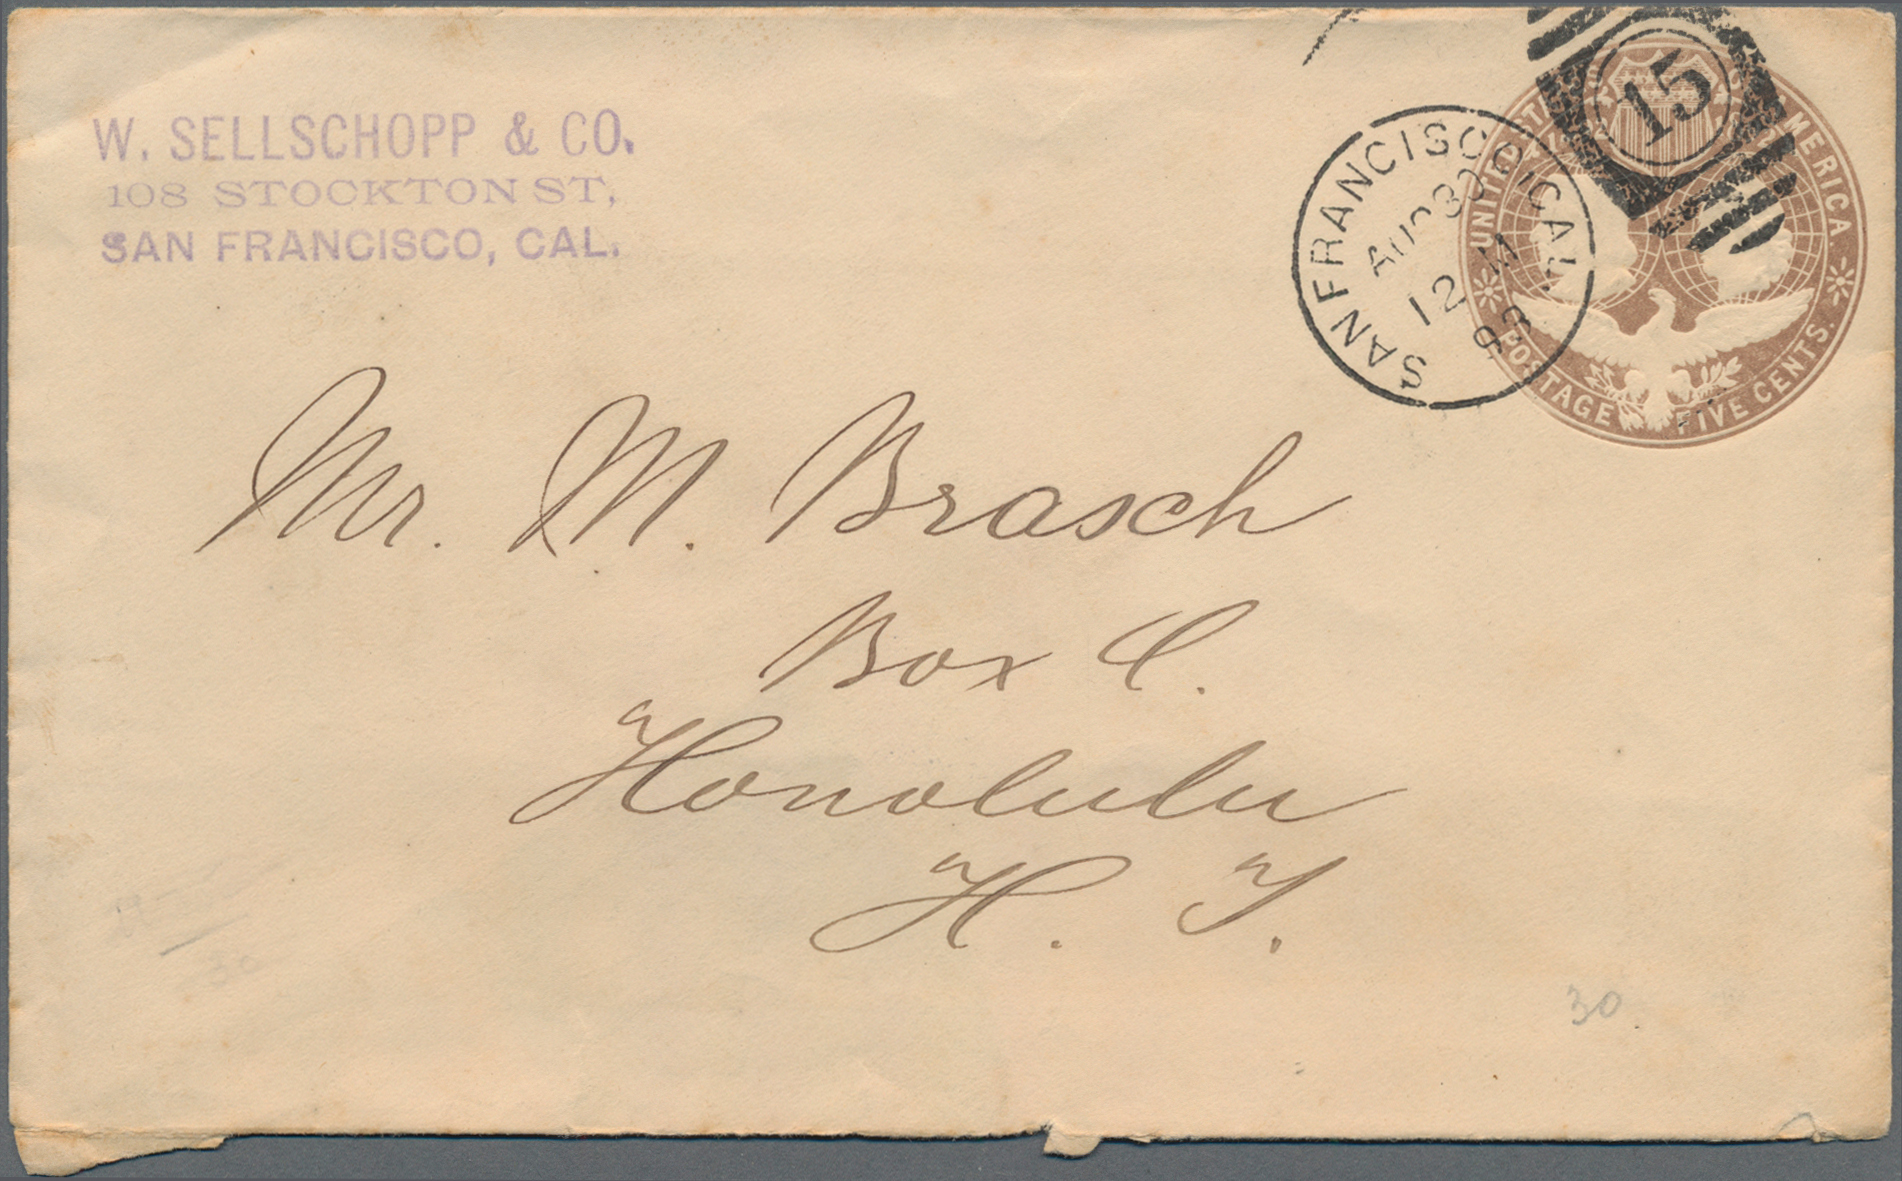 W. SELLSCHOPP & CO.
108 STOCKTON ST,
SAN FRANCISCO, CAL.
SAN FRANCISCO, CAL.
AUG 30
12 M
93
15
UNITED STATES OF AMERICA.
POSTAGE FIVE CENTS.
Mr. M. Brasch
Box C.
Honolulu
H. I.
30